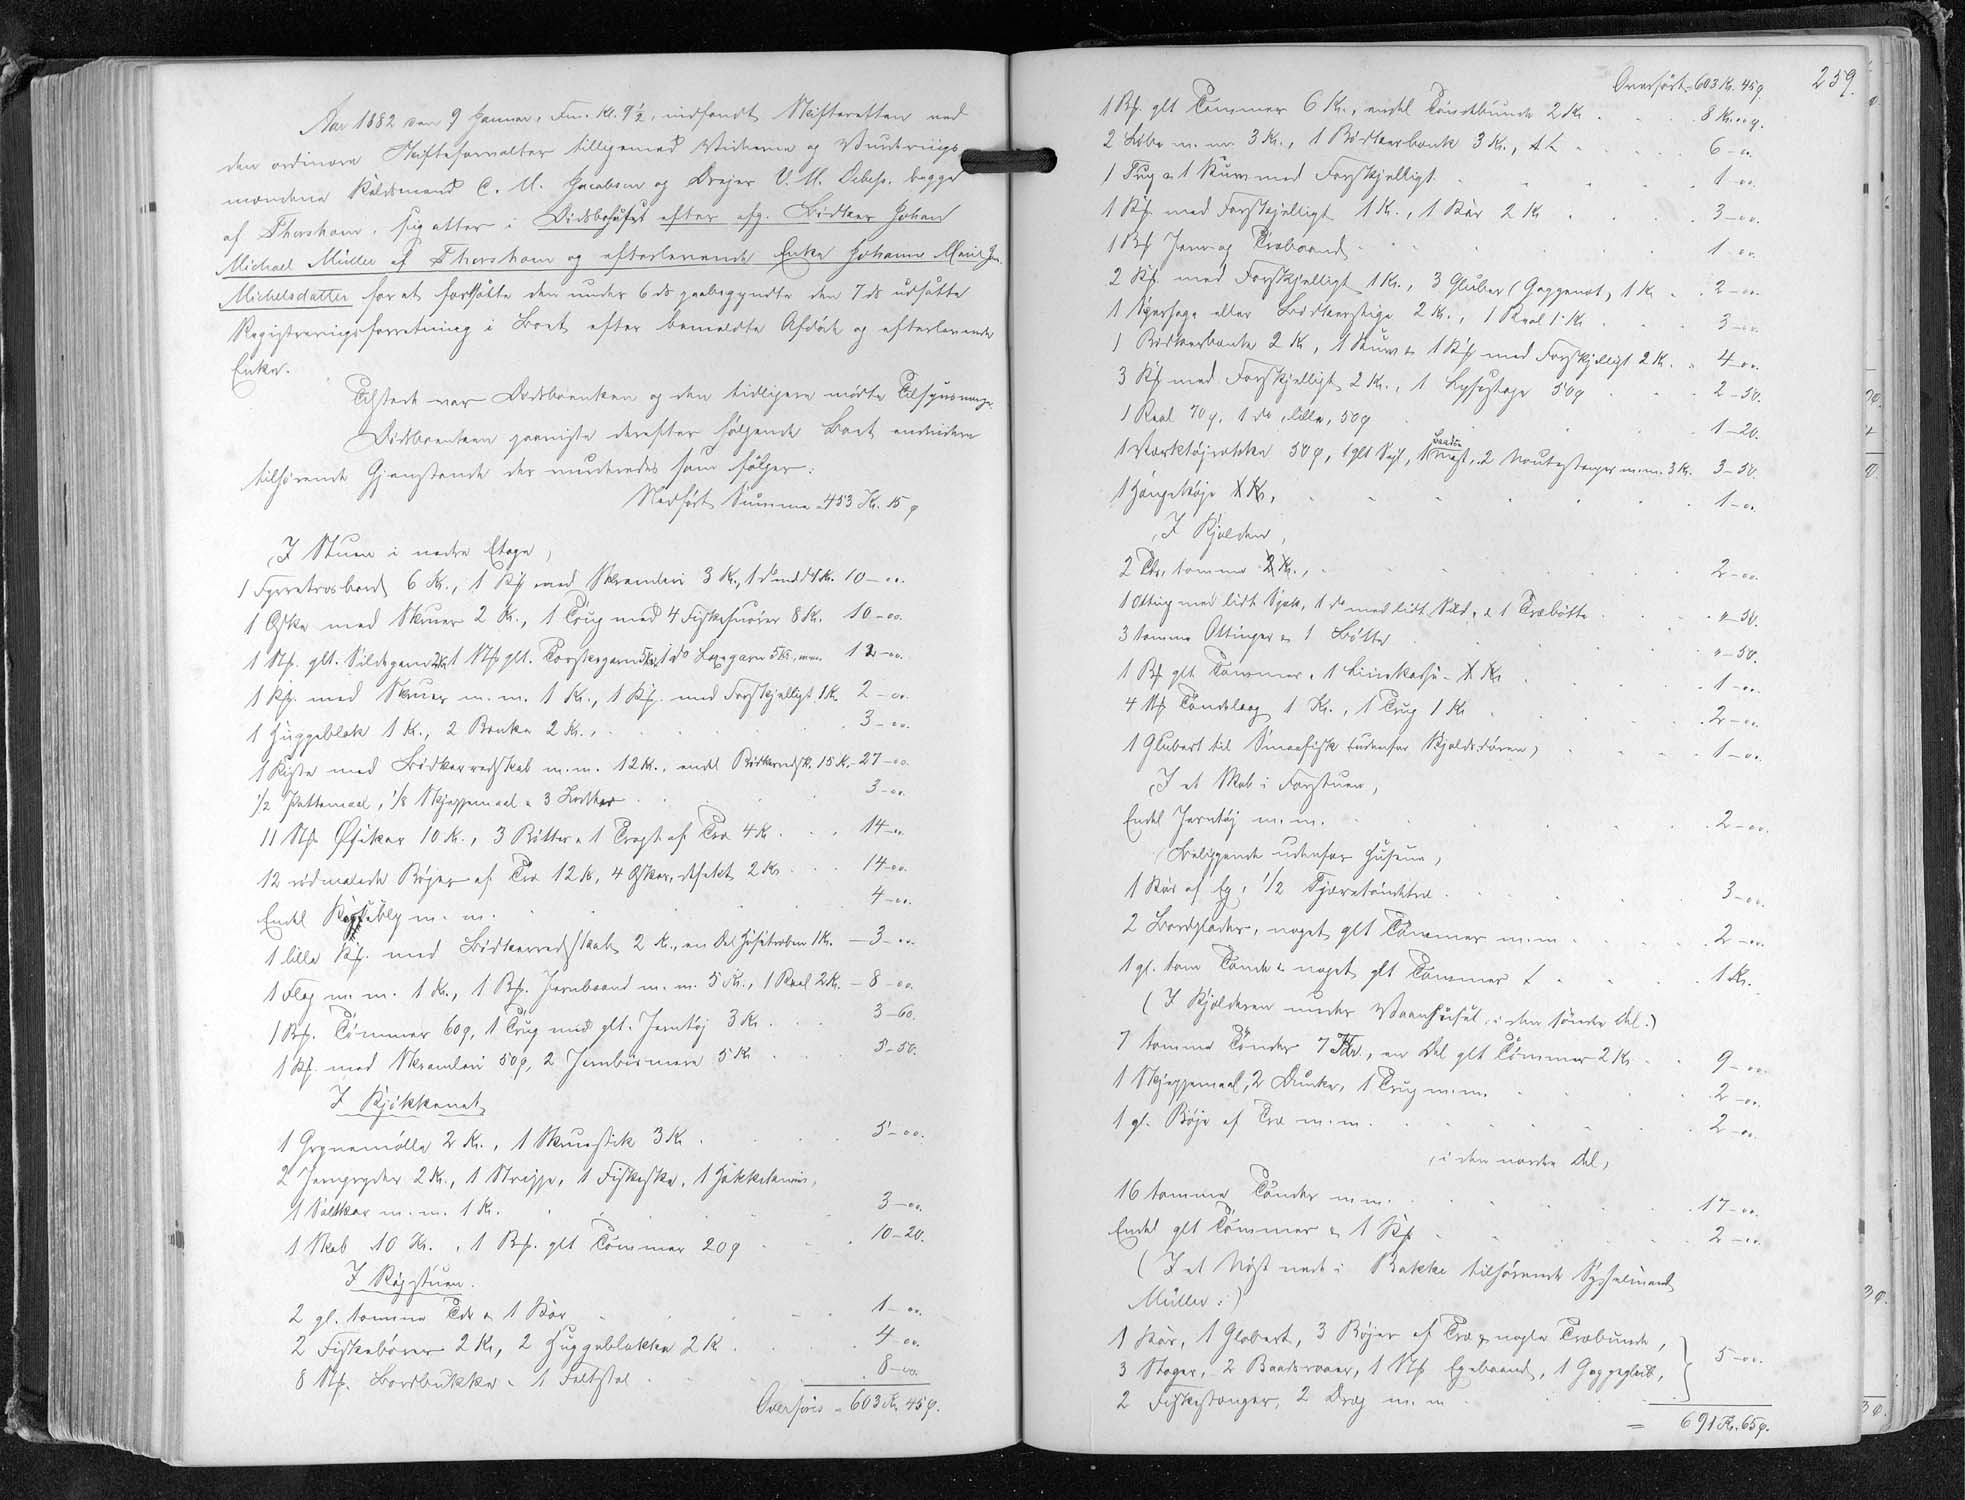 Aar 1882 den 9 Januar, Fm. Kl. 9½, indfandt Skifteretten ved
den ordinære Skifteforvalter tilligemed Vidnerne og Vurderings
mændene Kældsmand C. M. Jacobsen og Drejer V. U. Debess. begge
af Thorshavn, sig atter i Dødsbohuset efter afg. Bødker Johan
Michael Müller af Thorshavn og efterlevende Enke Johanne Marie
Michelsdatter for at fortsætte den under 6 ds paabegyndte den 7 ds udsatte
Registreringsforretning i Boet efter bemeldte Afdøde og efterlevende
Enke.
Tilstede var Dødsboenken og den tidligere mødte Tilsynsværge.
Dødsboenken paaviste derefter følgende Boet endvidere
tilhørende Gjenstande der vurderedes som følger:
Nedført Summa = 453 Kr. 15 ø
(I Stuen i nedre Etage)
1 Fyrretræsbord 6 Kr., 1 Ks. med Skramleri 3 Kr., 1 do med do 1 Kr. 10 – 00.
1 Æske med Skruer 2 Kr., 1 Trug med 4 Fiskesnører 8 Kr. 10 – 00.
1 Stk. glt. Sildegarn 2 Kr. 1 Stk glt. Torskegarn 5 Kr. 1 do Laxgarn 5 Kr., m.m. 12 – 00.
1 Ks. med Skruer m. m. 1 Kr., 1 Ks. med Forskjelligt 1 Kr. 2 – 00.
1 Huggeblok 1 Kr., 2 Bænke 2 Kr., 3 – 00.
1 Kiste med Bødkerredskab m. m. 12 Kr., endel Bødkerredsk. 15 Kr. – 27 – 00.
½ Pottemaal, ⅛ Skjeppemaal & 3 3 – 00.
11 Stk. Øsekar 10 Kr., 3 Bøtter & 1 Tragt af Træ 4 Kr. 14 – 00.
12 rødmalede Bøjer af Træ 12 Kr., 4 Æsker, defekt 2 Kr. 14 – 00.
Endel m. m. 4 – 00.
1 lille Ks. med Bødkerredskab 2 Kr., en Del 1 Kr. – 3 – 00.
1 Flag m. m. 1 Kr., 1 Bf. Jernbaand m. m. 5 Kr., 1 Kael 2 Kr. – 8 – 00.
1 Bf. Tømmer 60 ø, 1 Trug med glt. Jerntøj 3 Kr. 3 – 60.
1 Ks. med Skramleri 50 ø, 2 Jernbismere 5 Kr. 5 – 50.
I Kjøkkenet
1 Grynemølle 2 Kr., 1 Skruestik 3 Kr. 5 – 00.
2 Jerngryder 2 Kr., 1 Strippe, 1 Fiskeske, 1 Hakkekniv,
1 Saltkar m. m. 1 Kr. 3 – 00.
1 Skab 10 Kr., 1 Bf. glt Tømmer 20 ø 10 – 20.
I Røgstuen.
2 gl. tomme Tdr & 1 Kar 1 – 00.
2 Fiskebører 2 Kr., 2 Huggeblokke 2 Kr. 4 – 00.
8 Stk. Bordbukke & 1 Feltstol 8 – 00.
Overføres = 603 Kr. 45 ø.
259.
Overført = 603 Kr. 45 ø.
1 Bf. glt Tømmer 6 Kr., endel Tøndebunde 2 Kr 8 Kr. 00 ø.
2 m. m. 3 Kr., 1 Bødkerbænk 3 Kr., 6 – 00.
1 Trug & 1 Kurv med Forskjelligt 1 – 00.
1 Ks. med Forskjelligt 1 Kr., 1 Kar 2 Kr 3 – 00.
1 Bf Jern og Træbaand 1 – 00.
2 Ks. med Forskjelligt 1 Kr., 3 Gluber (Gaggenot) 1 Kr. 2 – 00.
1 eller 2 Kr., 1 Kael 1 Kr 3 – 00.
1 Bødkerbænk 2 Kr, 1 Kurv & 1 Ks. med Forskjelligt 2 Kr. 4 – 00.
3 Ks. med Forskjelligt 2 Kr., 1 Lysestage 50 ø 2 – 50.
1 Kael 70 ø, 1 do, lille, 50 ø 1 – 20.
1 Værktøjrække 50 ø, 1 glt Sejl, 1 Baads Mast, 2 m.m. 3 Kr. 3 – 50.
1 Hængekøje 1 Kr, 1 – 00.
(I Kjelderen)
2 Tdr, tomme 2 Kr., 2 – 00.
1 Otting med lidt Spæk, 1 do med lidt Sild, & 1 Træbøtte „ – 50.
3 tomme Ottinger & 1 Bøtte „ – 50.
1 Bf glt Tømmer & 1 Linekasse – 1 Kr 1 – 00.
4 Stk Tøndelaag 1 Kr., 1 Trug 1 Kr 2 – 00.
1 Glubert til Smaafisk (udenfor Kjelderdøren) 1 – 00.
(I et Skab i Forstuen)
Endel Jerntøj m. m. 2 – 00.
(Beliggende udenfor Husene)
1 Kar af Eg, ½ Tjæretøndetræ 3 – 00.
2 Bordplader, noget glt Tømmer m. m 2 – 00.
1 gl. tom Tønde & noget glt Tømmer 1 Kr.
(I Kjelderen under Vaanhuset, i den søndre Del.)
7 tomme Tønder 7 Kr., en Del glt Tømmer 2 Kr. 9 – 00.
1 Skjeppemaal, 2 Dunke, 1 Trug m. m. 2 – 00.
1 gl. Bøje af Træ m. m. 2 – 00.
(i den nordre Del)
16 tomme Tønder m. m. 17 – 00.
Endel glt Tømmer & 1 Ks. 2 – 00.
(I et Nøst nede i Bakke tilhørende Sysselmand
Müller:)
1 Kar, 1 Globert, 3 Bøjer af Træ & nogle Træbunde,
3 Stager, 2 Baadsaarer, 1 Stk Egebaand, 1 Gaggeglub, 5 – 00.
2 Fiskestænger, 2 Dræg m. m
= 691 Kr. 65 ø.